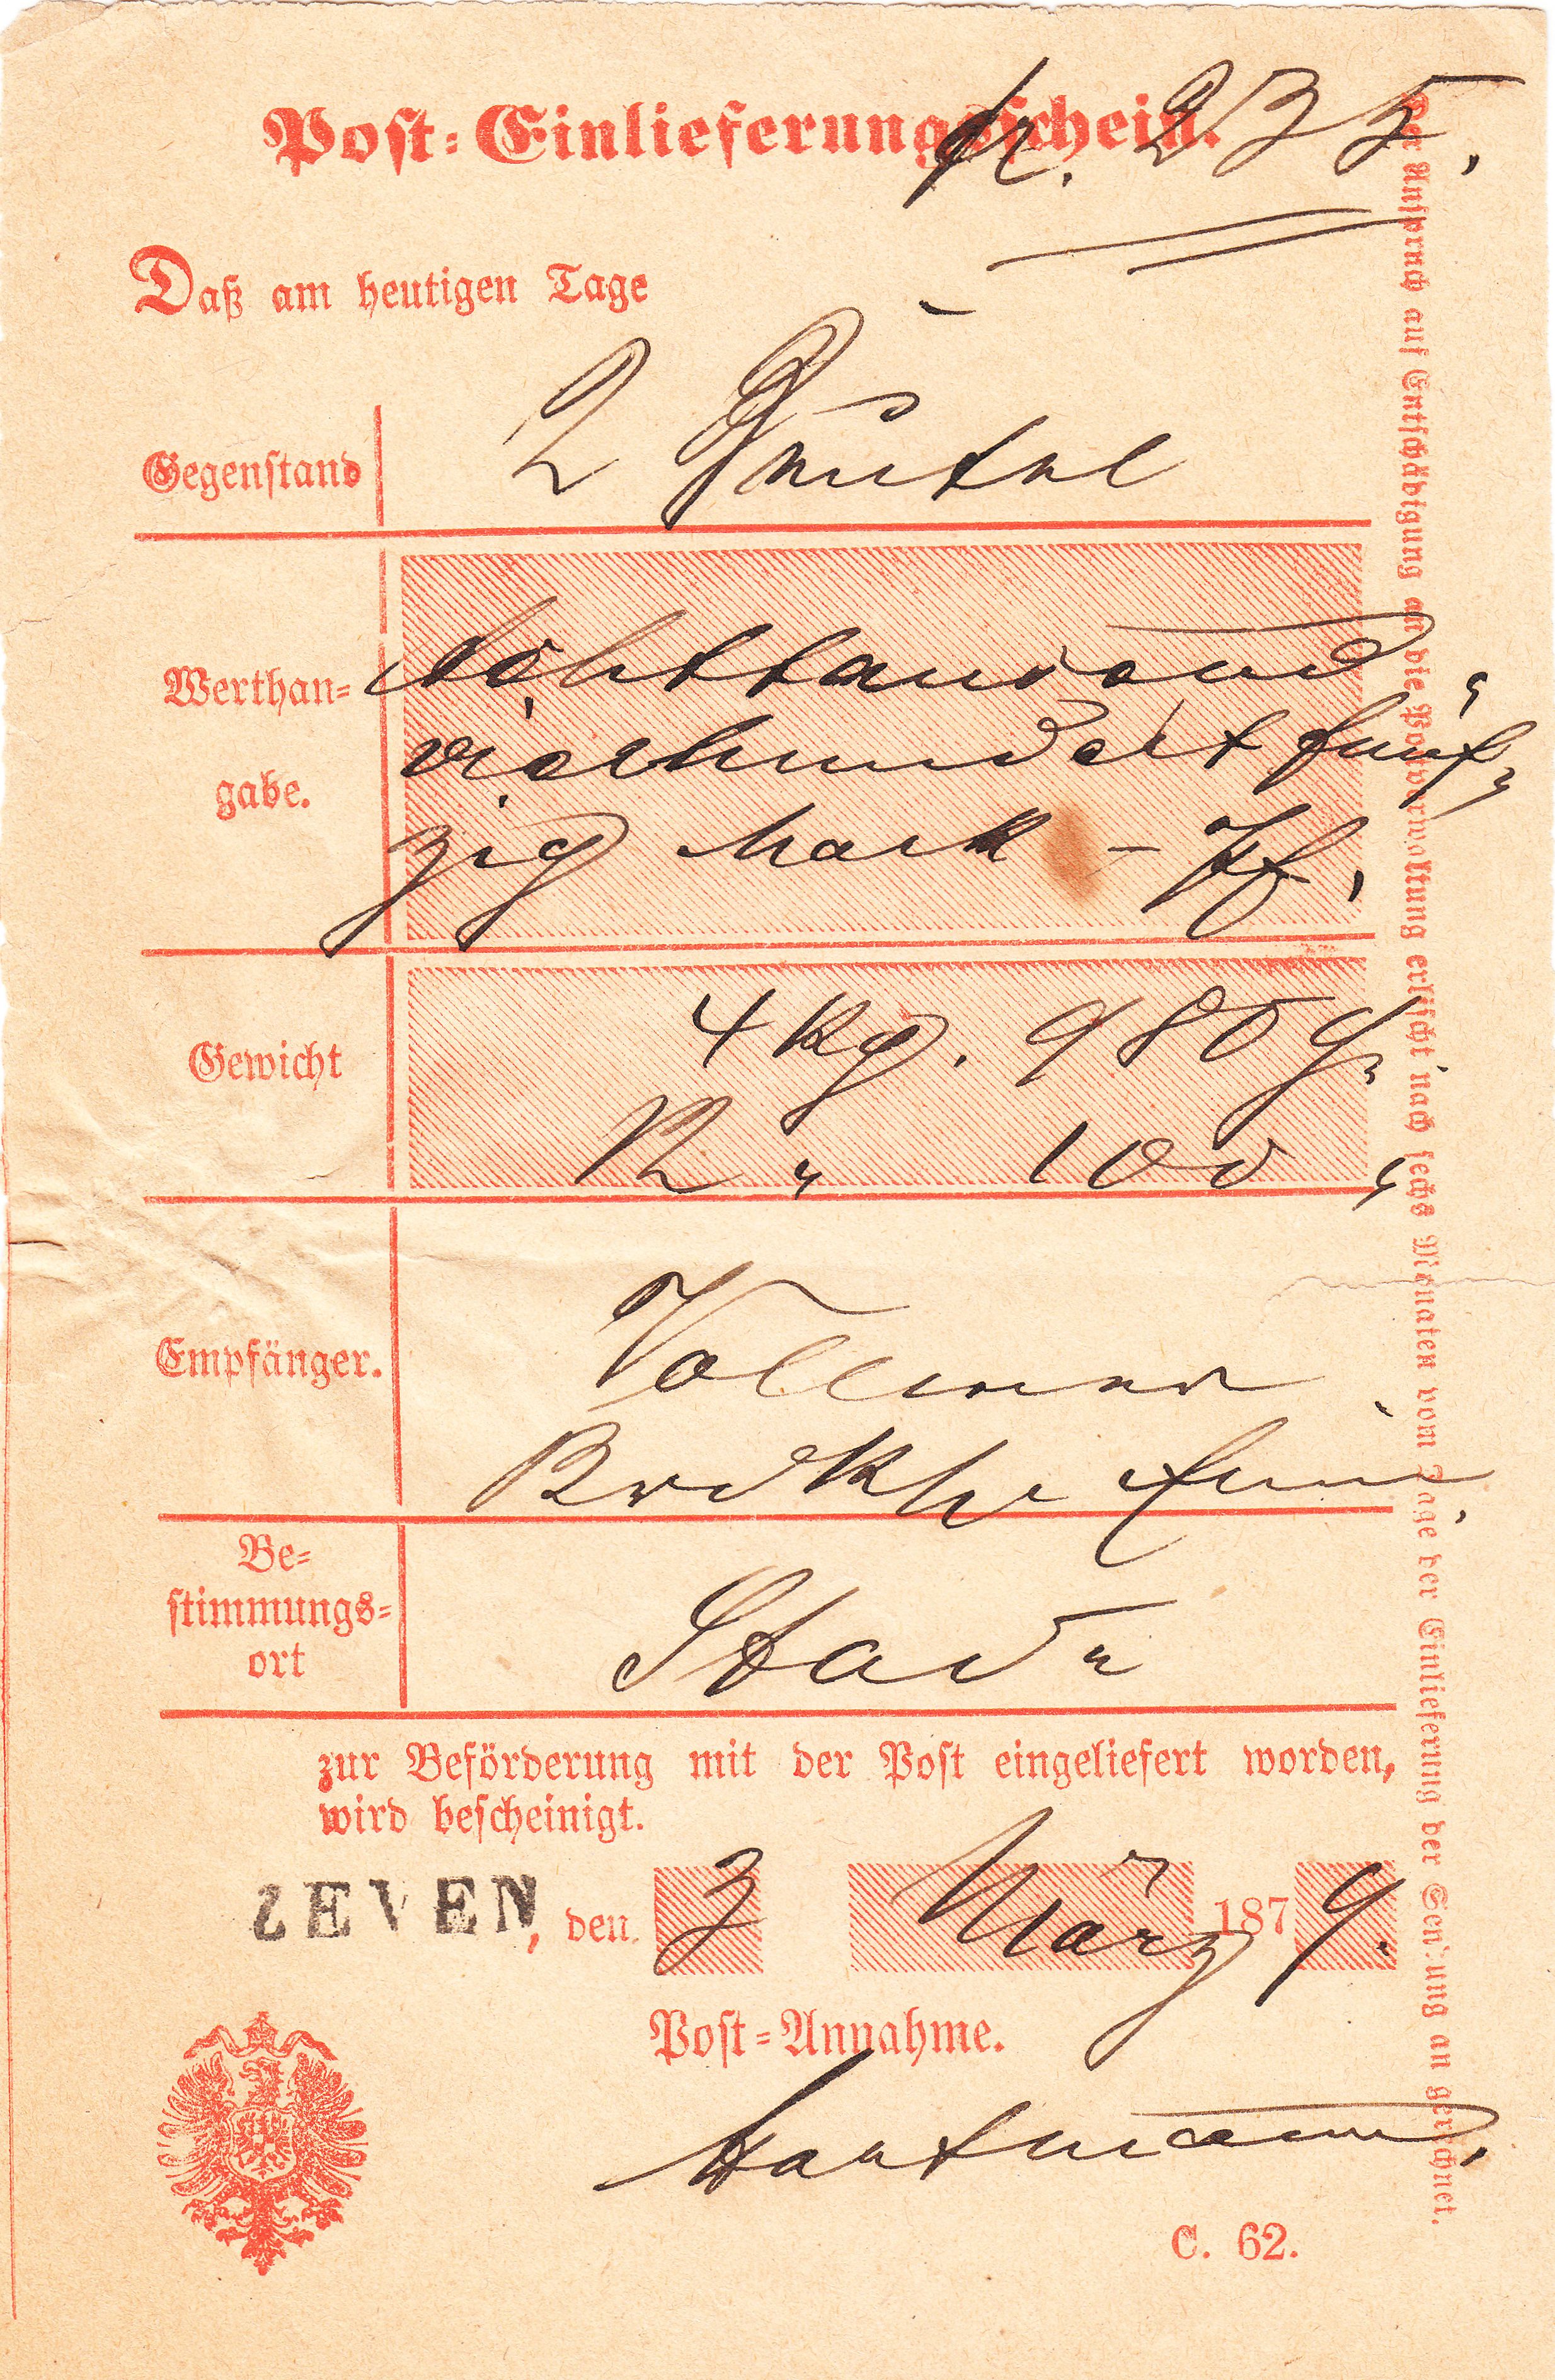 Post-Einlieferungsschein.
Nr. 235.
Daß am heutigen Tage
Gegenstand
2 Beutel
Werthan-
gabe.
Achttausend
vierhundert fünf-
zig Mark - Pf.
Gewicht
4 Kg. 980 g.
12 " 100 "
Empfänger.
Vollmer
Be-
stimmungs-
ort
Stade
zur Beförderung mit der Post eingeliefert worden,
wird bescheinigt.
ZEVEN, den 3 März 1879.
Post-Annahme.
Hartmann
C. 62.
Der Anspruch auf Entschädigung an die Postverwaltung erlischt nach sechs Monaten vom Tage der Einlieferung der Sendung an gerechnet.